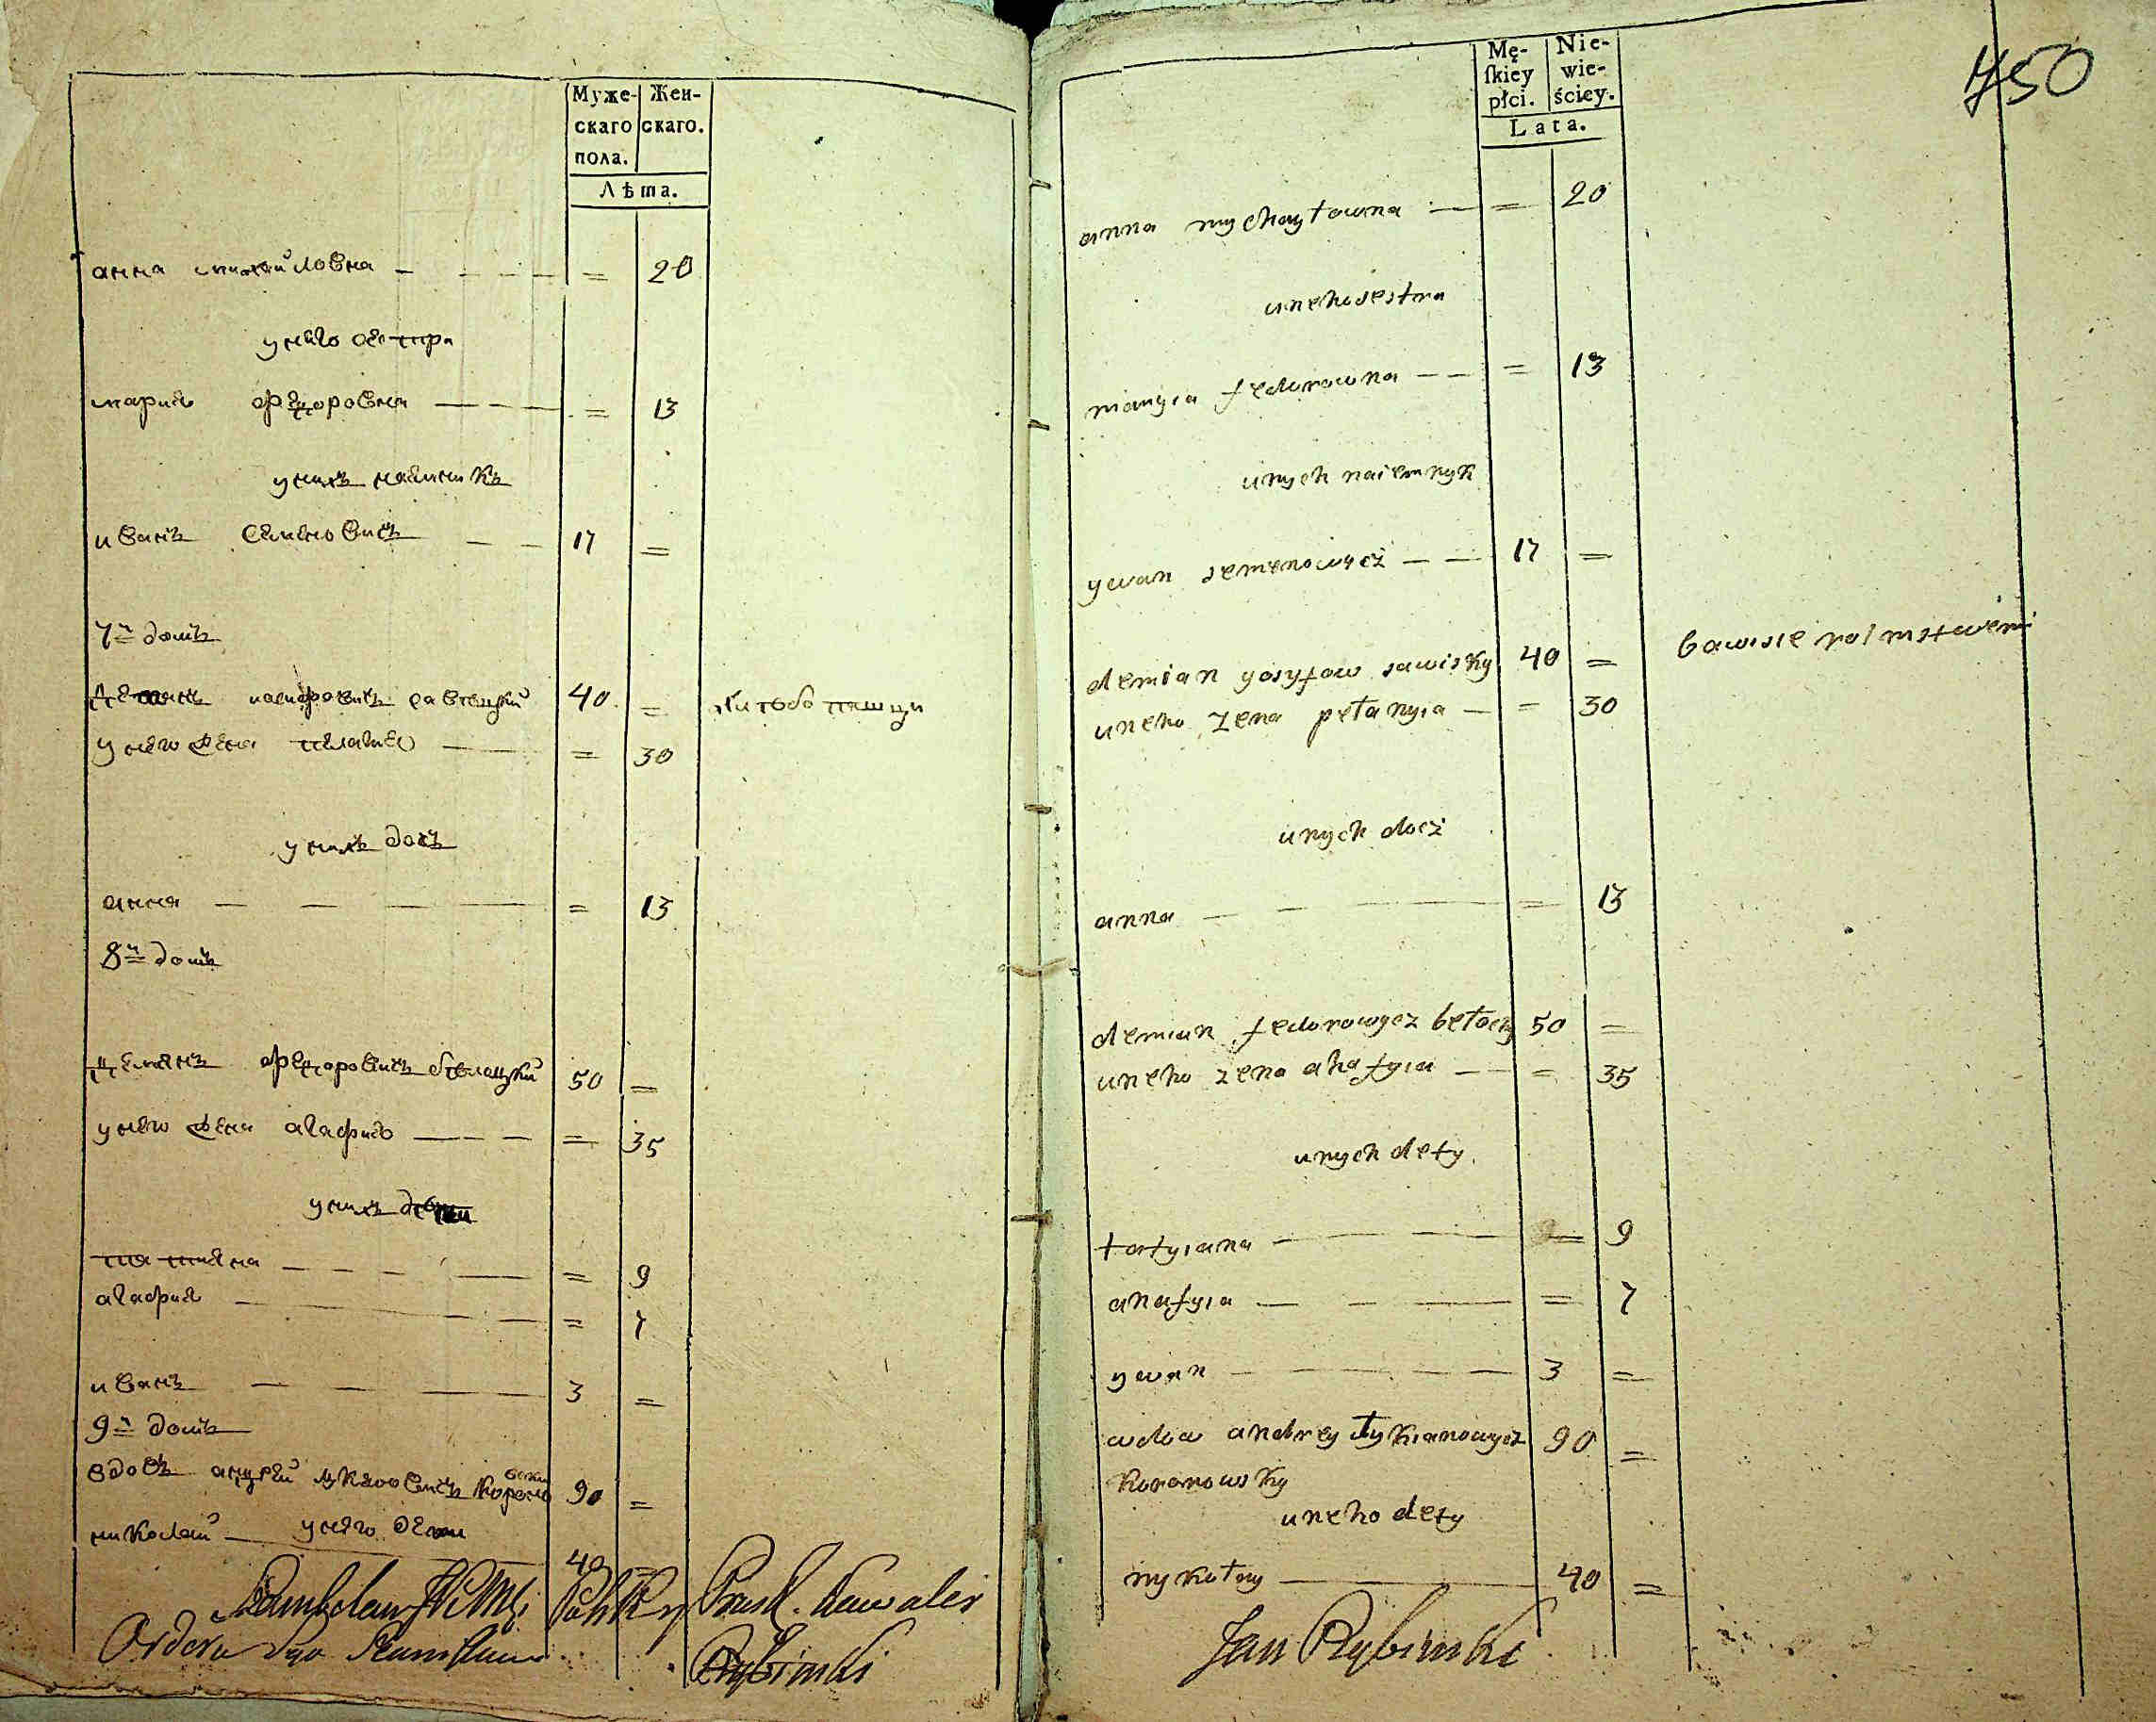 Муже- Жен-
скаго скаго.
пола.
Лѣта.
анна михайловна — — — = 20
унего сестра
мария федоровна — — — = 13
унихъ наемникъ
иванъ семеновичъ — — 17 =
7й домъ
демянъ иосифовичъ савицкий 40 =
унего жена пелагия — = 30
унихъ дочъ
анна — — — — = 13
8й домъ
демянъ федоровичъ белецкий 50 =
унего жена агафия — — — = 35
унихъ дети
татияна — — — — = 9
агафия — — — — = 7
иванъ — — — — 3 =
9й домъ
вдовъ андрей лукяновичъ 90 =
унего дети
николай — 40
Kawaler
Ordera Sgo
Rybinski
750
Mę- Nie-
ſkiey wie-
płci. ściey.
Lata.
anna mychayłowna — = 20
uneho sestra
maryia fedorowna — — = 13
unych naiemnyk
ywan semenowycz — — 17 =
demian yosyfow sawisky 40 =
bawisie
uneho zena pełahyia — = 30
unych docz
anna — — — = 13
demian fedorowycz bełocky 50 =
uneho zena ahafyia — — = 35
unych dety
tatyiana — — — = 9
ahafyia — — — = 7
ywan — — — — 3 =
wdow andrey łykianowycz 90 =
koronowsky
uneho dety
nykołay — 40 =
Jan Rybinski